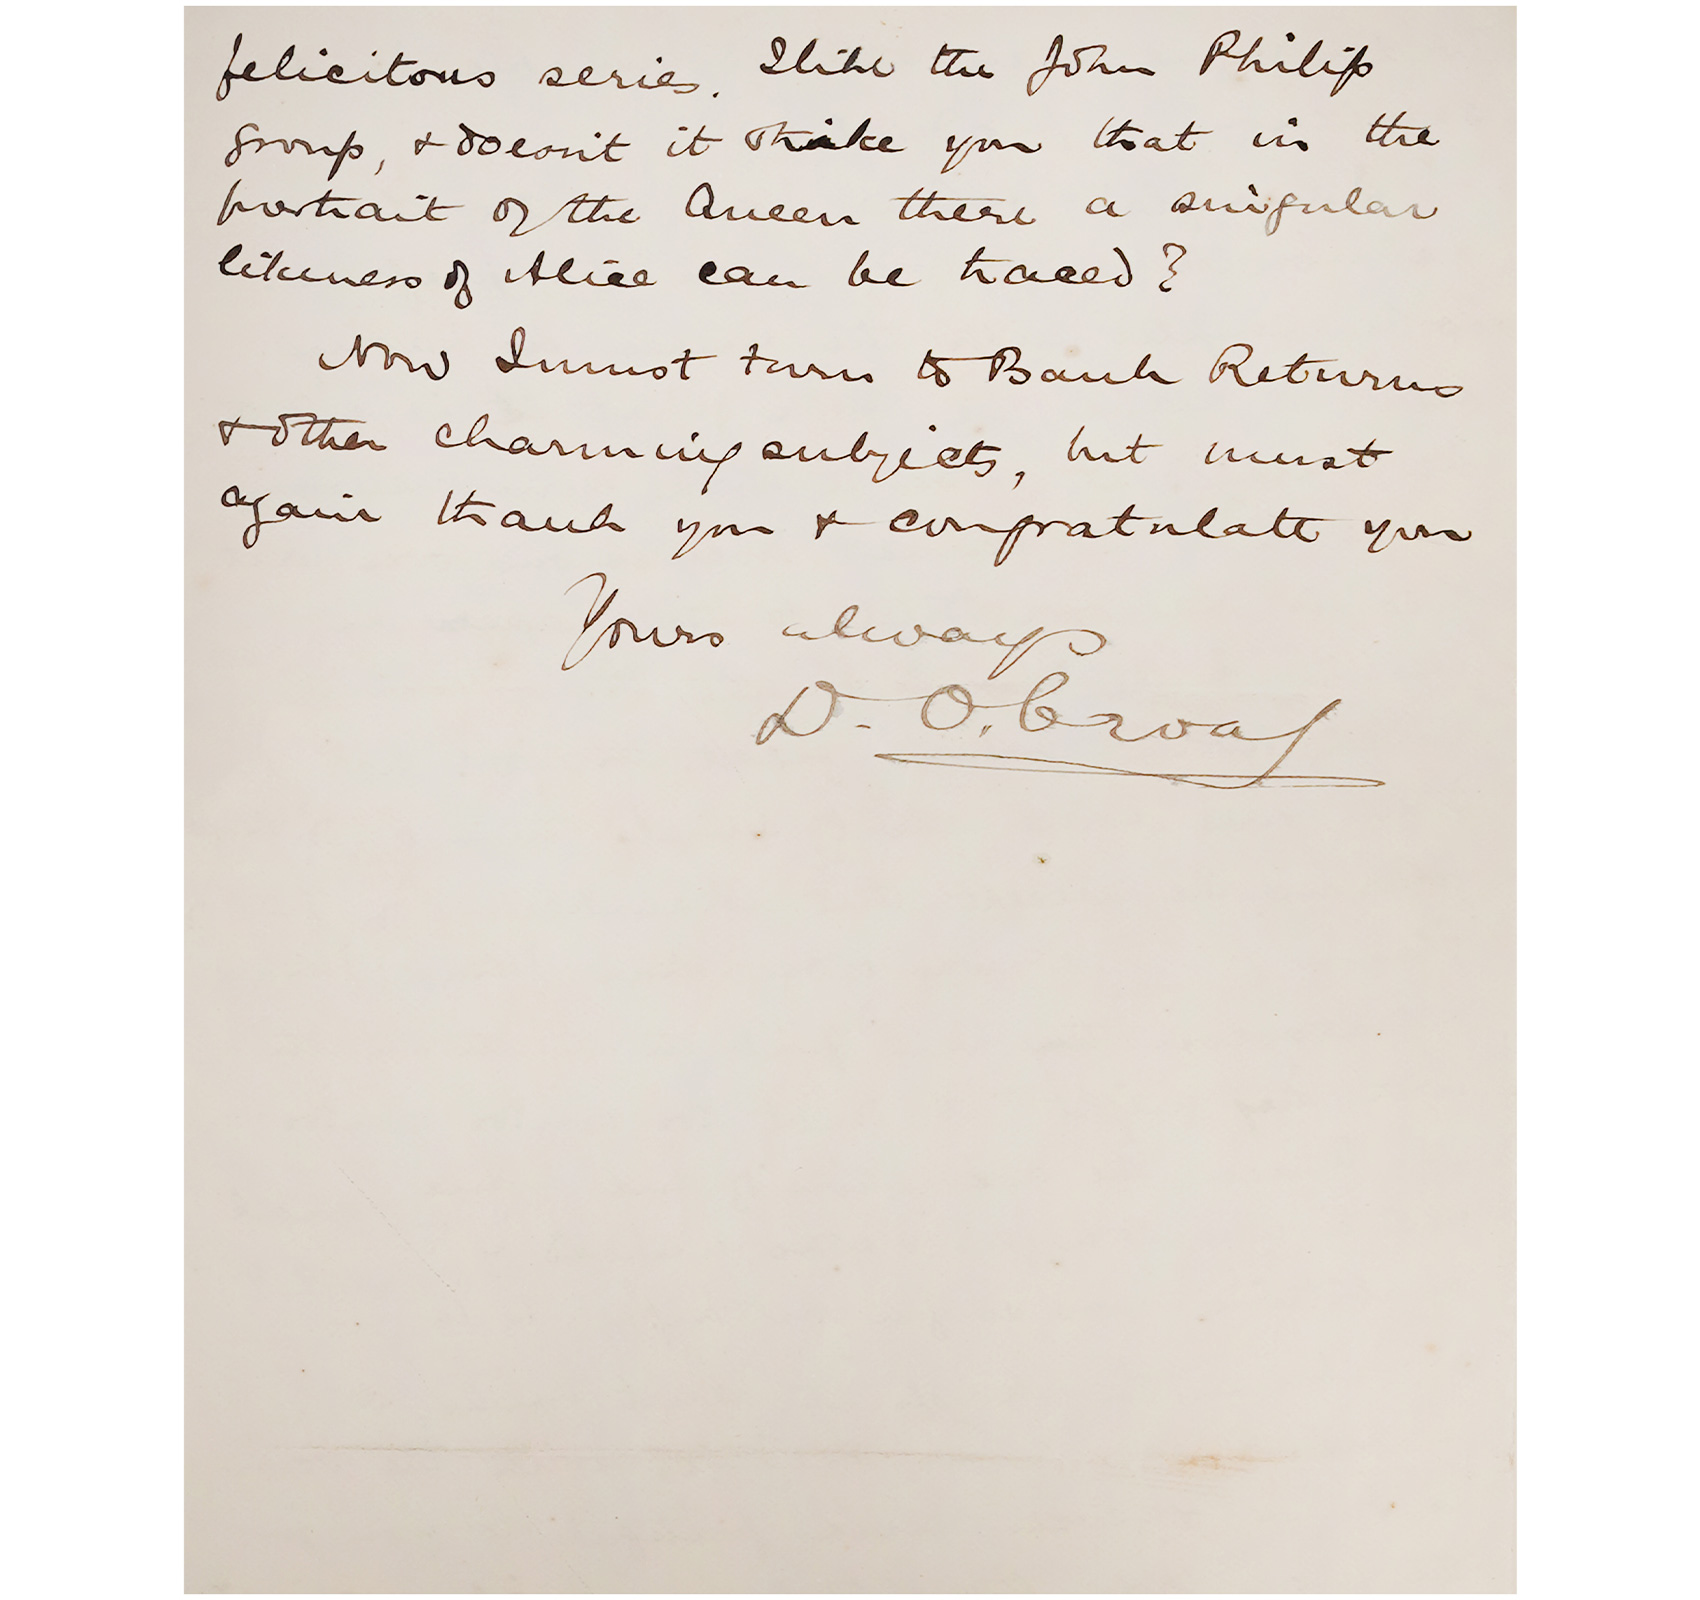 felicitous series. I like the John Philip
group, & doesn't it strike you that in the
portrait of the Queen there a singular
likeness of Alice can be traced?
Now I must turn to Bank Returns
& other charming subjects, but must
again thank you & congratulate you
Yours always
D. O. Croal